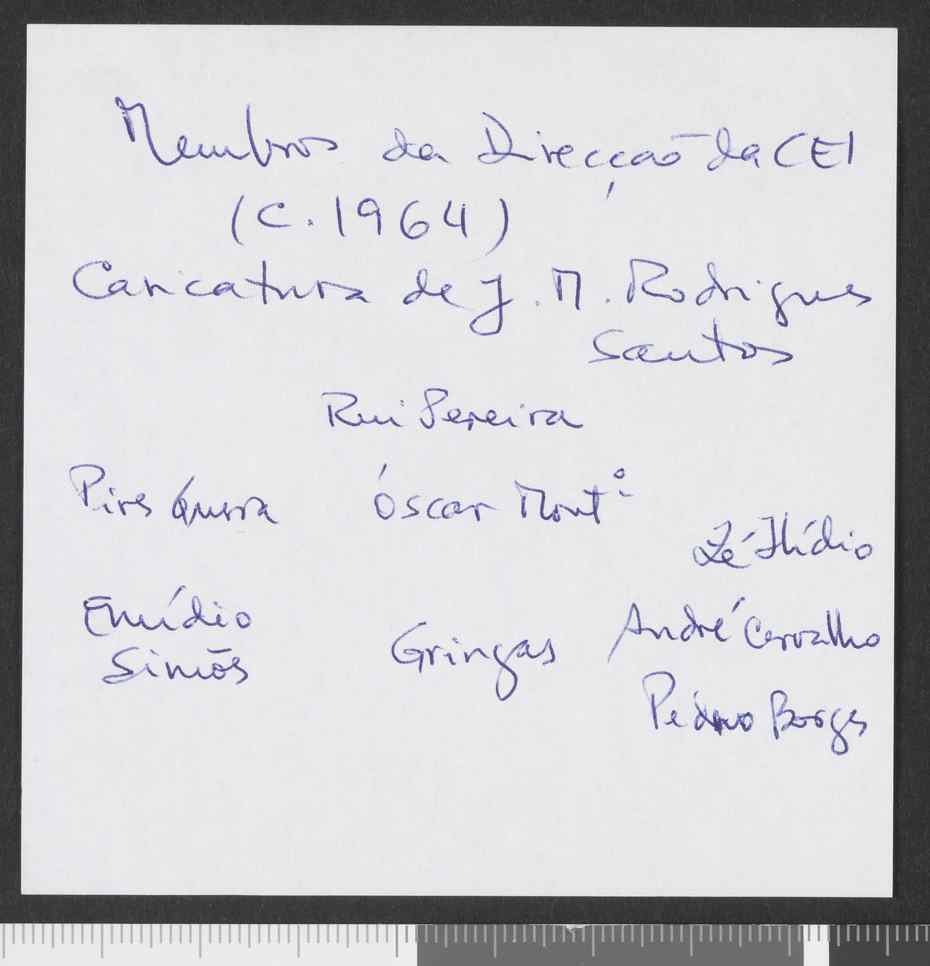 Membros da Direcção da CEI
(C. 1964)
Caricatura de J. M. Rodrigues
Santos
Rui Pereira
Pires Guerra Óscar Montº
Zé Ilídio
Emídio
Simões
Gringas
André Carvalho
Pedro Borges